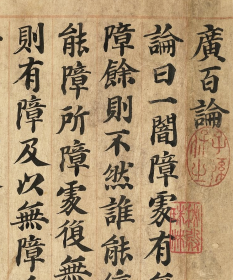 廣百論
論曰一闇障𠁅有
障餘則不然誰能
能障所障𠁅復無
則有障及以無障